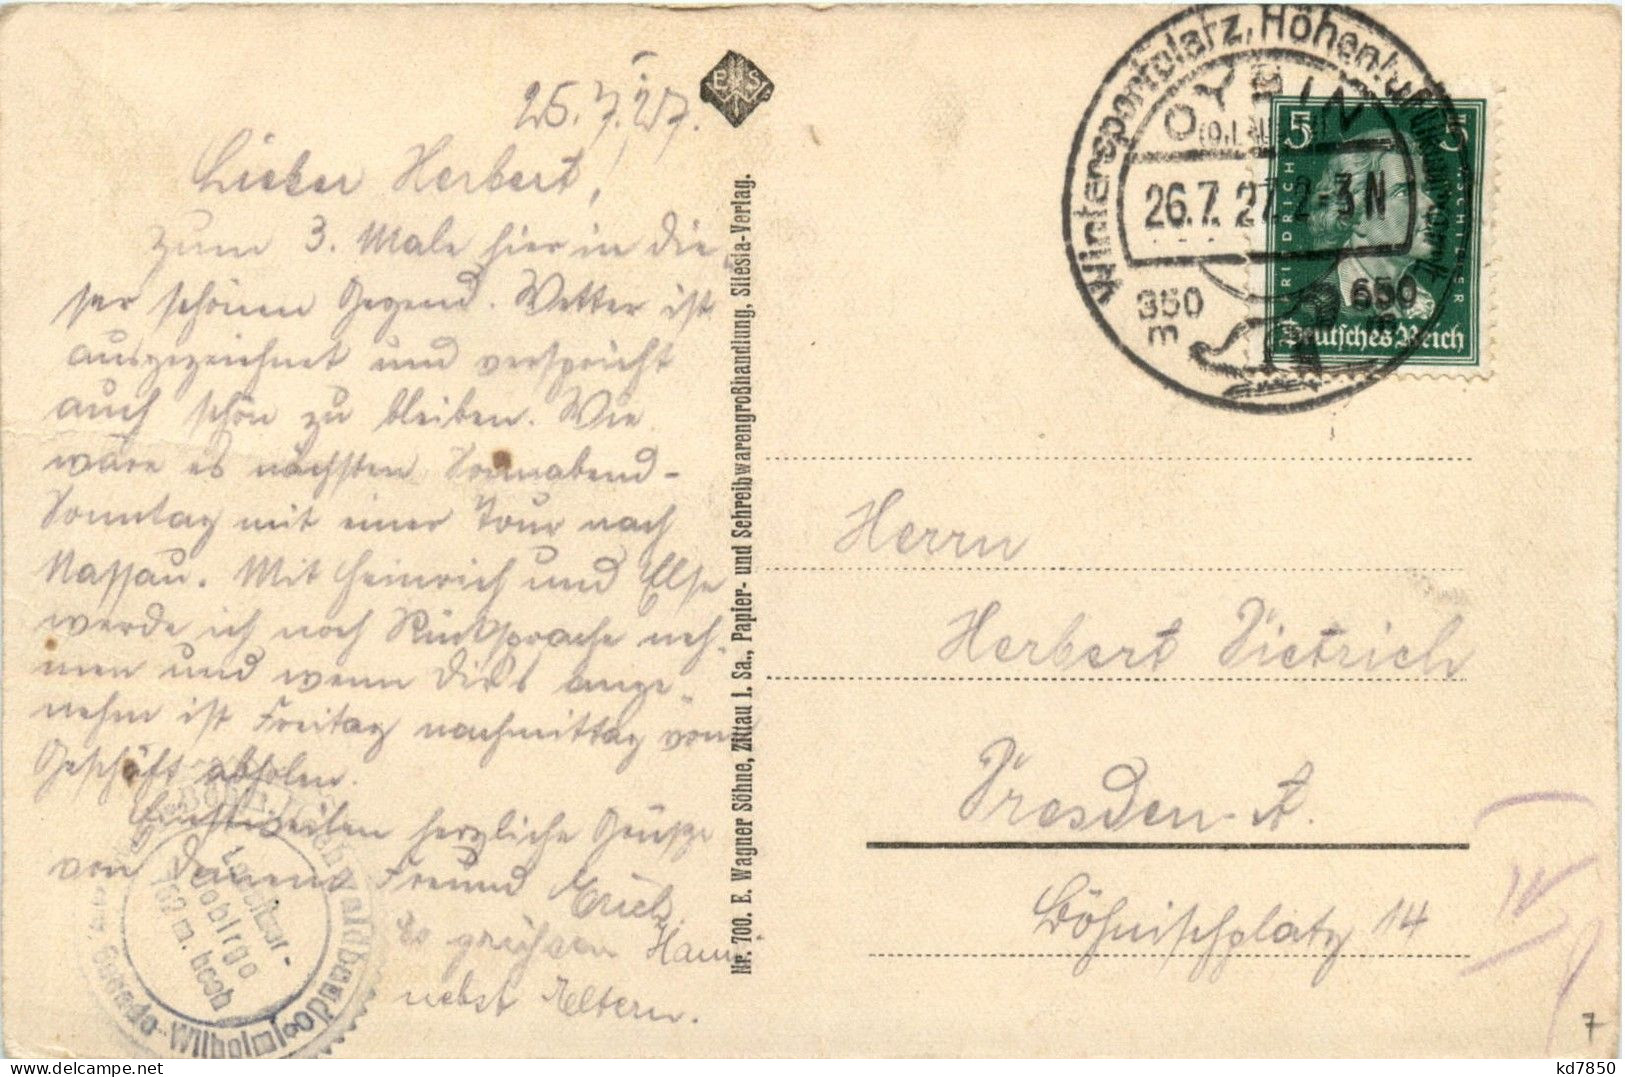 25.7.27.
Lieber Herbert,
Zum 3. Male hier in die-
ser schönen Gegend. Wetter ist
ausgezeichnet und verspricht
auch schön zu bleiben. Wie
wäre es nächsten Sonnabend-
Sonntag mit einer Tour nach
Nassau. Mit Heinrich und Else
werde ich noch Rücksprache neh-
men und wenn Dir's ange-
nehm ist Freitag nachmittag vom
Geschäft abholen.
Einstweilen herzliche Grüße
von Deinem Freund Erich.
Es grüßen Hanni
nebst Eltern.
Hochwaldbaude
Lausitzer-
762 m. hoch
E S
Nr. 700. E. Wagner Söhne, Zittau i. Sa., Papier- und Schreibwarengroßhandlung, Silesia-Verlag.
Wintersportplatz, Höhenluft
OYBIN
26.7.27. 2-3N
350 m
650 m
5 5
FRIEDRICH V. SCHILLER
Deutsches Reich
Herrn
Herbert Dietrich
Dresden-A.
Böhnischplatz 14
7
kd7850